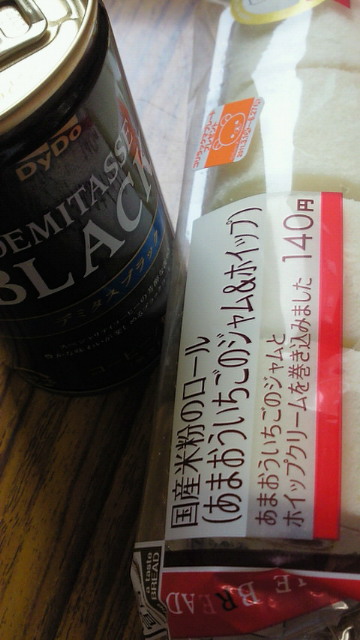 DyDo
DEMITASSE
BLACK
デミタスブラック
国産米粉のロール
(あまおういちごのジャム&ホイップ)
あまおういちごのジャムと
ホイップクリームを巻き込みました 140円
a taste
BREAD
BREAD